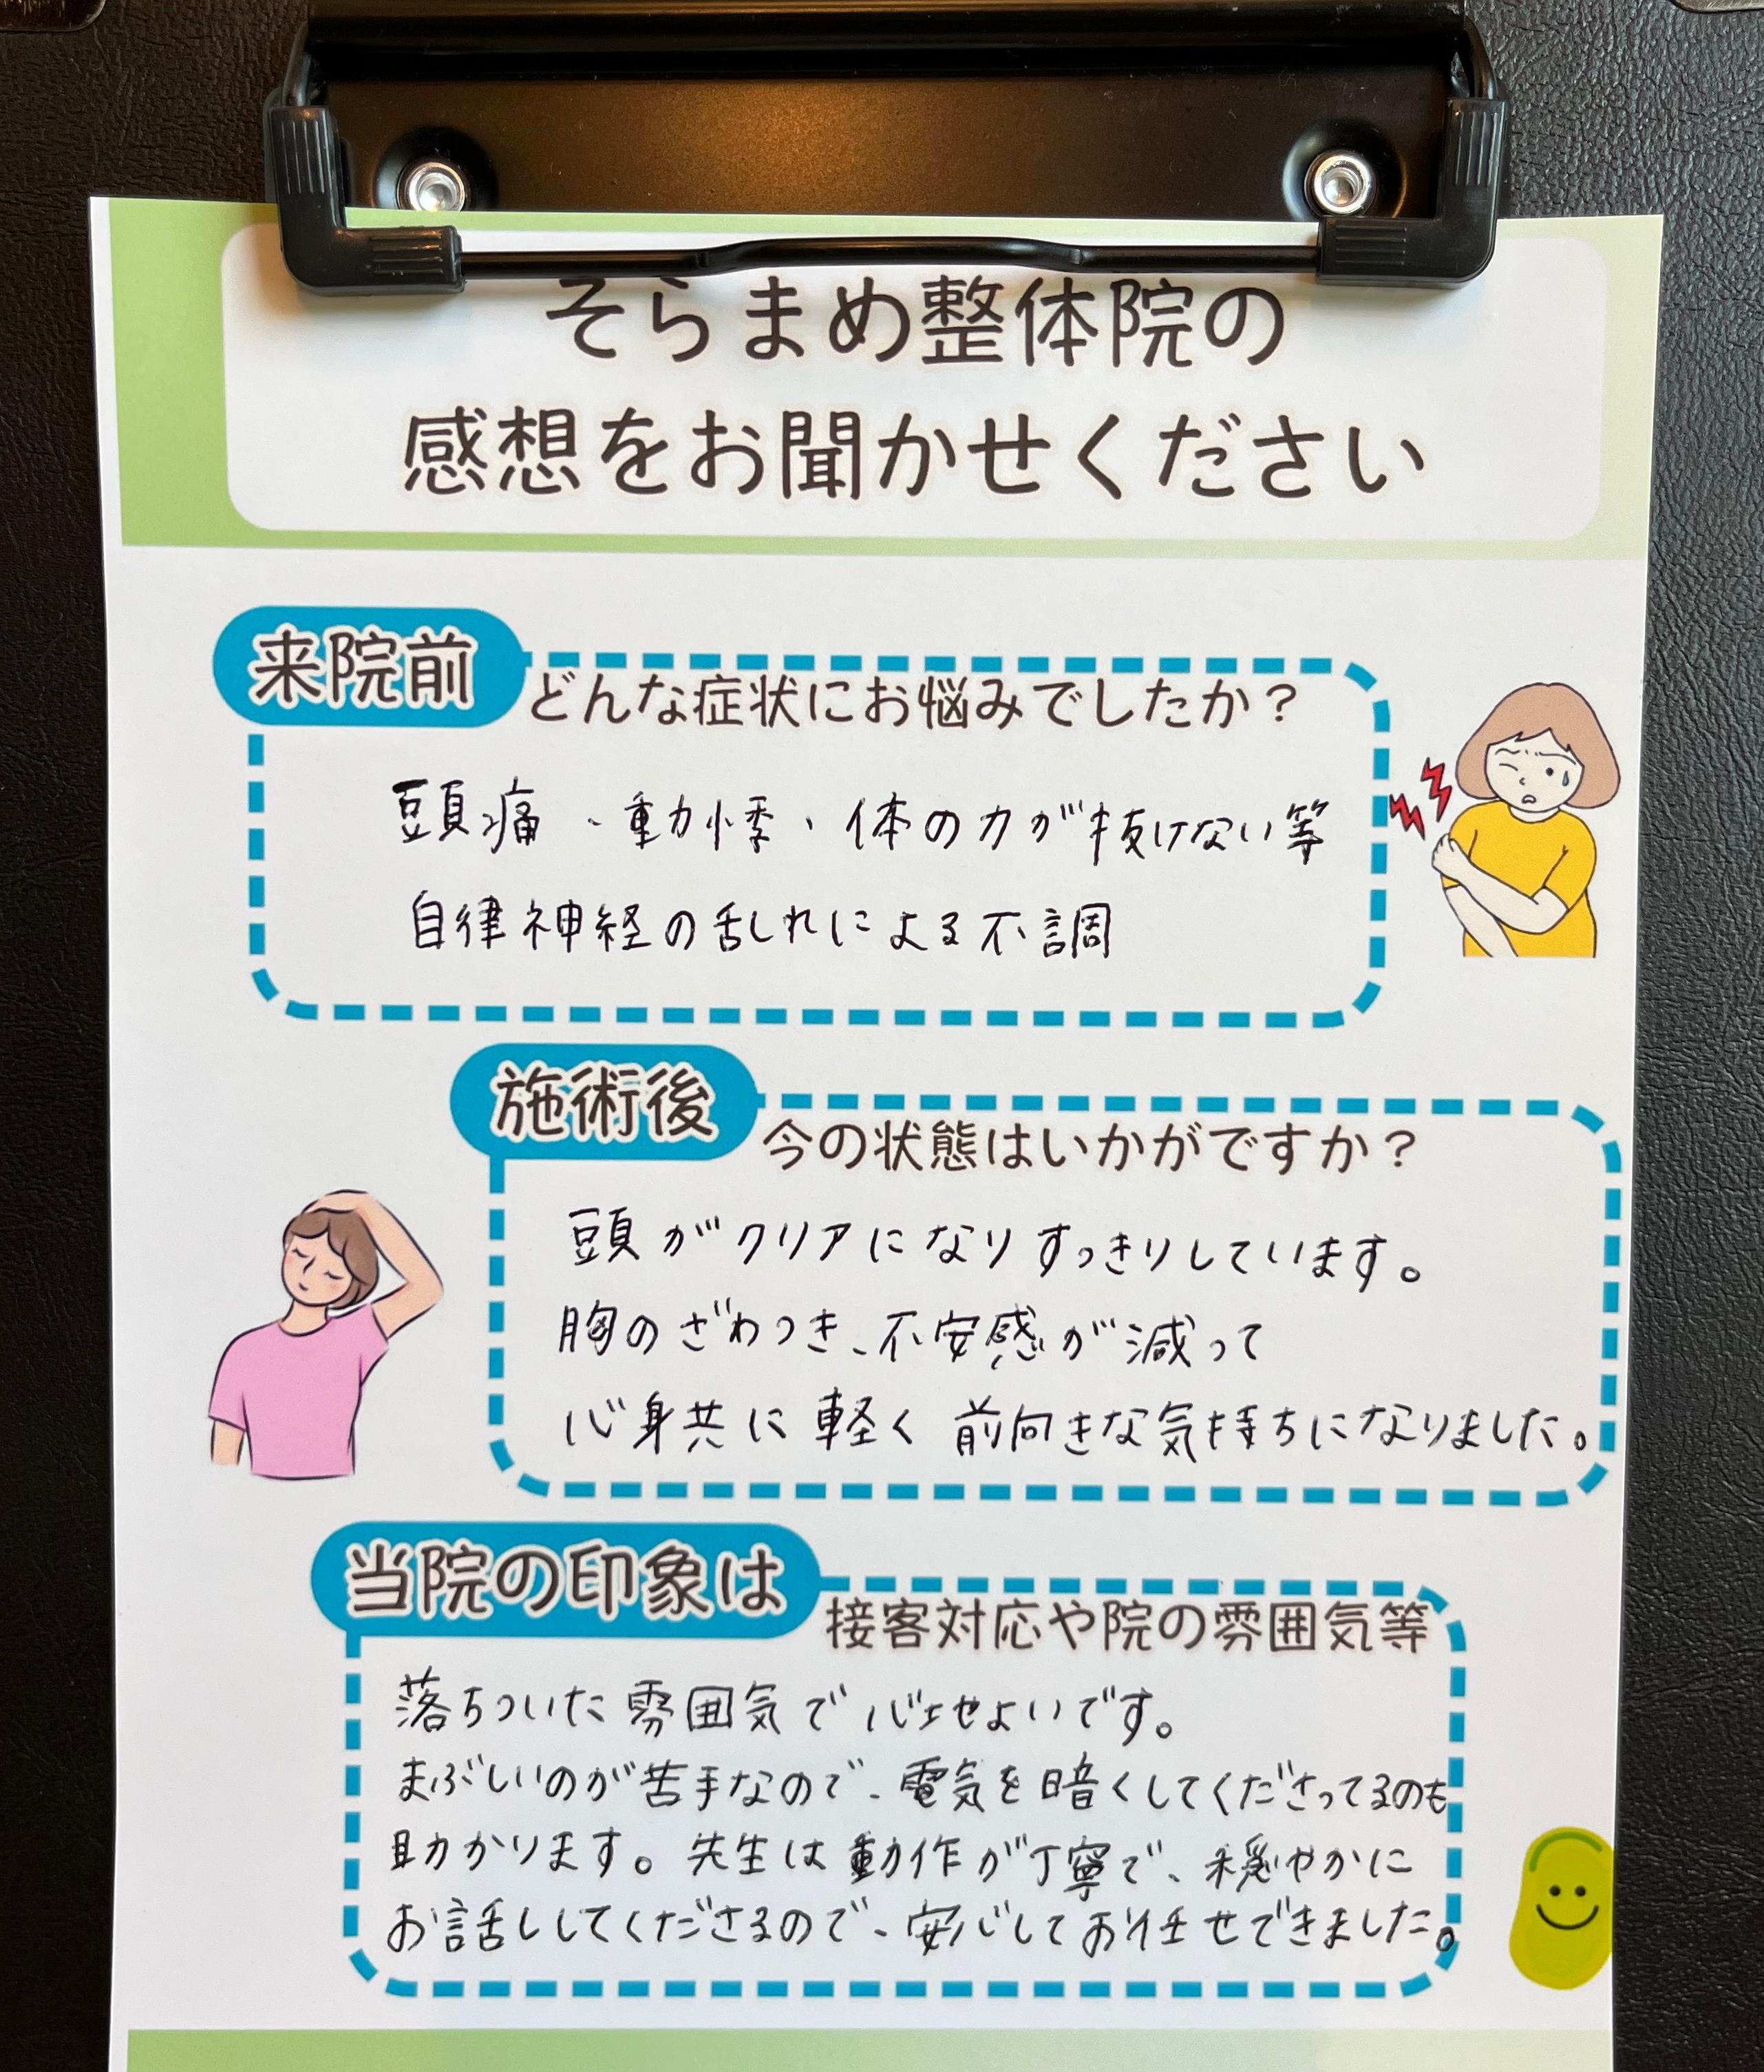 そらまめ整体院の
感想をお聞かせください
来院前
どんな症状にお悩みでしたか？
頭痛、動悸、体の力が抜けない等
自律神経の乱れによる不調
施術後
今の状態はいかがですか？
頭がクリアになりすっきりしています。
胸のざわつき、不安感が減って
心身共に軽く前向きな気持ちになりました。
当院の印象は
接客対応や院の雰囲気等
落ちついた雰囲気で心地よいです。
まぶしいのが苦手なので、電気を暗くしてくださってるのも
助かります。先生は動作が丁寧で、穏やかに
お話ししてくださるので、安心してお任せできました。